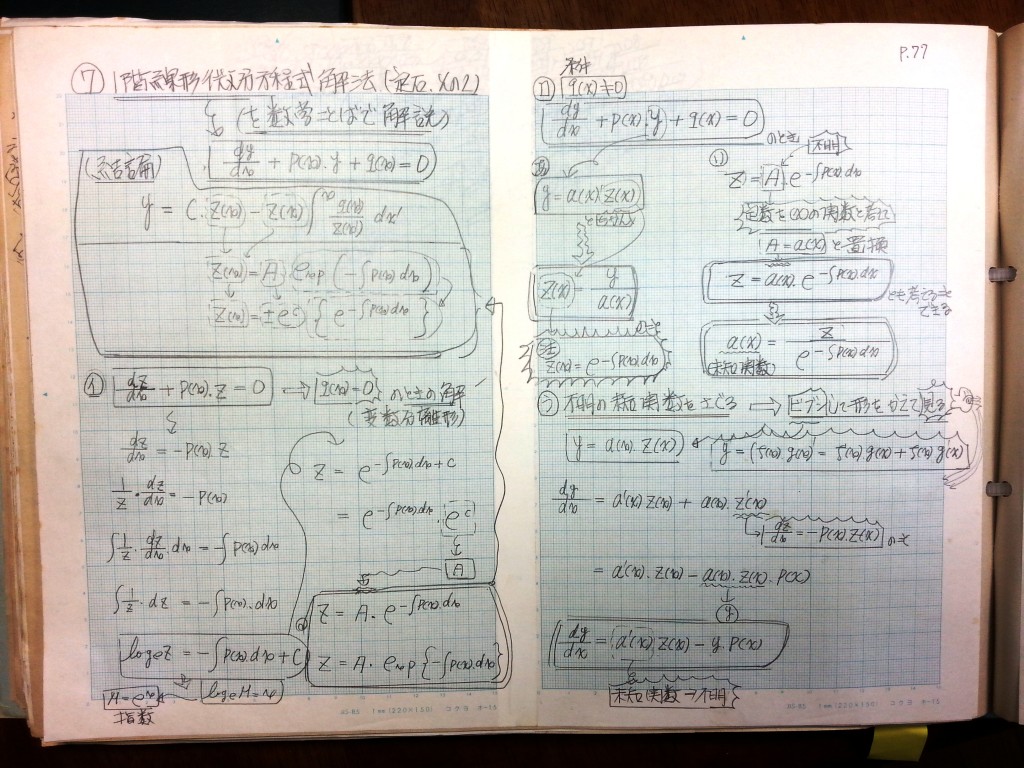 P.77
⑦ 1階線形微分方程式 解法
(を数学ことばで 解説)
(結論)
dy/dx + P(x)·y + q(x) = 0
y = C·Z(x) - Z(x) ∫^x q(x)/Z(x) dx'
Z(x) = A exp(-∫P(x)dx)
Z(x) = ±e^c {e^-∫P(x)dx}
イ dz/dx + P(x)·Z = 0 → q(x)=0 のときの解
(変数分離形)
dz/dx = -P(x)·Z
1/Z · dz/dx = -P(x)
∫1/Z · dz/dx · dx = -∫P(x)dx
∫1/Z · dz = -∫P(x)·dx
log e Z = -∫P(x)dx + C
M = e^x log e M = x
指数
Z = e^-∫P(x)dx + C
= e^-∫P(x)dx · e^c
A
Z = A · e^-∫P(x)dx
Z = A · exp{-∫P(x)dx}
ロ q(x)≠0
dy/dx + P(x)·y + q(x) = 0 のとき
y = a(x)·Z(x)
Z(x) = y/a(x)
Z(x) = e^-∫P(x)dx
不明
Z = A · e^-∫P(x)dx
定数を(x)の関数と考えて
A = a(x) と置換
Z = a(x)·e^-∫P(x)dx
とも考えることできる
a(x) = Z/e^-∫P(x)dx
(未知関数)
不明の未知関数をさぐる → ビブンして形をかえて見る
y = a(x)·Z(x)
y = (f(x)·g(x))' = f'(x)·g(x) + f(x)·g'(x)
dy/dx = a'(x)Z(x) + a(x)·Z'(x)
dz/dx = -P(x)·Z(x)
= a'(x)·Z(x) - a(x)·Z(x)·P(x)
y
dy/dx = a'(x)·Z(x) - y·P(x)
未知関数→不明
1mm(220×150) コクヨ ホ-15
1mm(220×150) コクヨ ホ-15